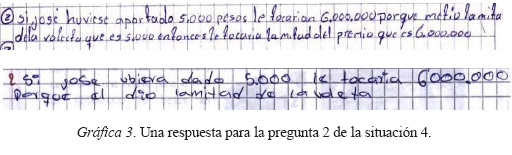 ② si jose huviese aportado 5.000 pesos le tocarian 6.000.000 porque metio la mita
de la voleta que es 5.000 entonces le tocaria la mitad del premio que es 6.000.000
2 Si jose ubiera dado 5.000 le tocaria 6000.000
Porque el dio lamitad de la voleta
Gráfica 3. Una respuesta para la pregunta 2 de la situación 4.